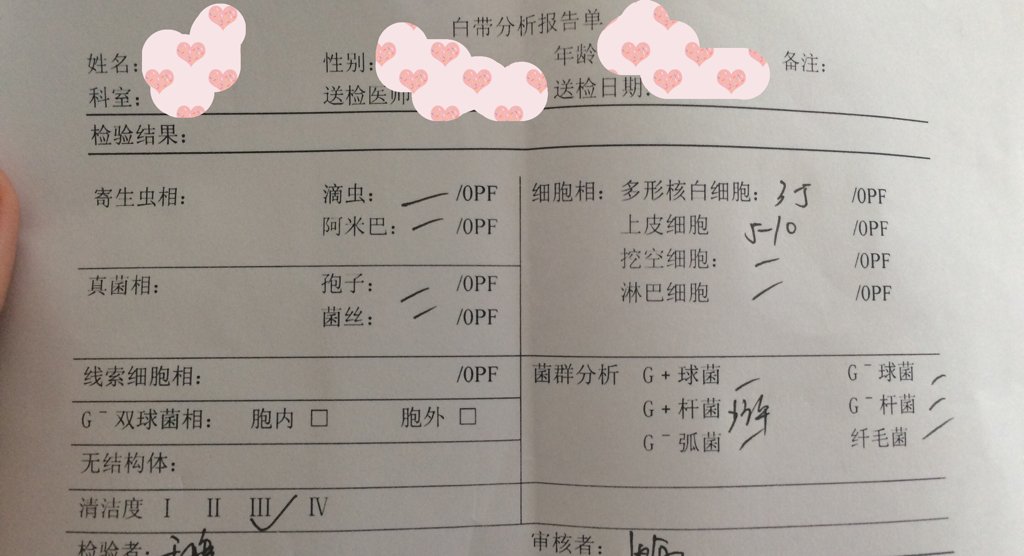 白带分析报告单
姓名: 性别: 年龄 备注:
科室: 送检医师 送检日期:
检验结果:
寄生虫相: 滴虫: — /OPF 细胞相: 多形核白细胞: 35 /OPF
阿米巴: — /OPF 上皮细胞 5-10 /OPF
挖空细胞: — /OPF
真菌相: 孢子: — /OPF 淋巴细胞 — /OPF
菌丝: — /OPF
线索细胞相: /OPF 菌群分析 G+球菌 — G⁻球菌 —
G⁻双球菌相: 胞内 □ 胞外 □ G+杆菌 G⁻杆菌 —
G⁻弧菌 — 纤毛菌 —
无结构体:
清洁度 Ⅰ Ⅱ Ⅲ✓ Ⅳ
检验者: 审核者: